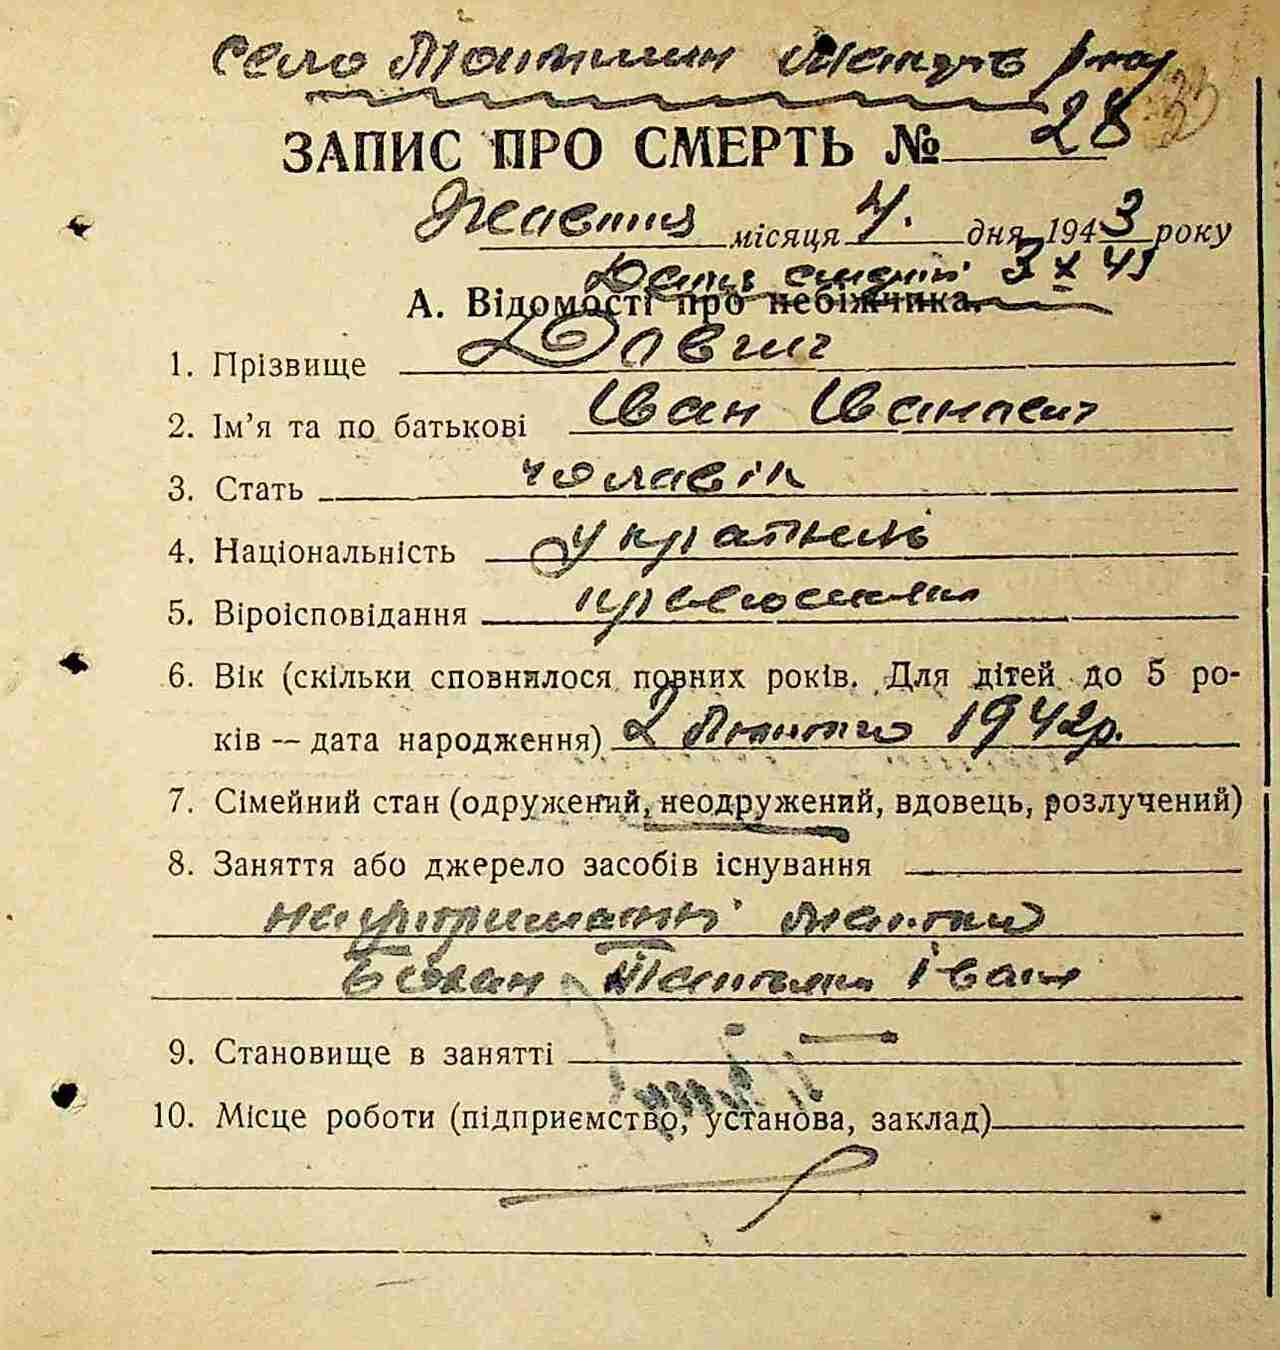 село
ЗАПИС ПРО СМЕРТЬ № 28
Жовтня місяця 4. дня 1943 року
Дата смерті 3 X 43
А. Відомості про небіжчика.
1. Прізвище Довгич
2. Ім'я та по батькові Іван Іванович
3. Стать чоловік
4. Національність українець
5. Віроісповідання
6. Вік (скільки сповнилося повних років. Для дітей до 5 ро-
ків — дата народження) 2 Лютого 1942р.
7. Сімейний стан (одружений, неодружений, вдовець, розлучений)
8. Заняття або джерело засобів існування
на утриманні матки
Іван
9. Становище в занятті —
10. Місце роботи (підприємство, установа, заклад)